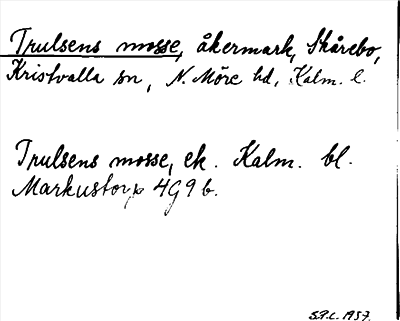 Trulsens mosse, åkermark, Skårebo,
Kristvalla sn, N. Möre hd, Kalm. l.
Trulsens mosse, ek. Kalm. bl.
Markustorp 4G9b.
S.P.C. 1957.